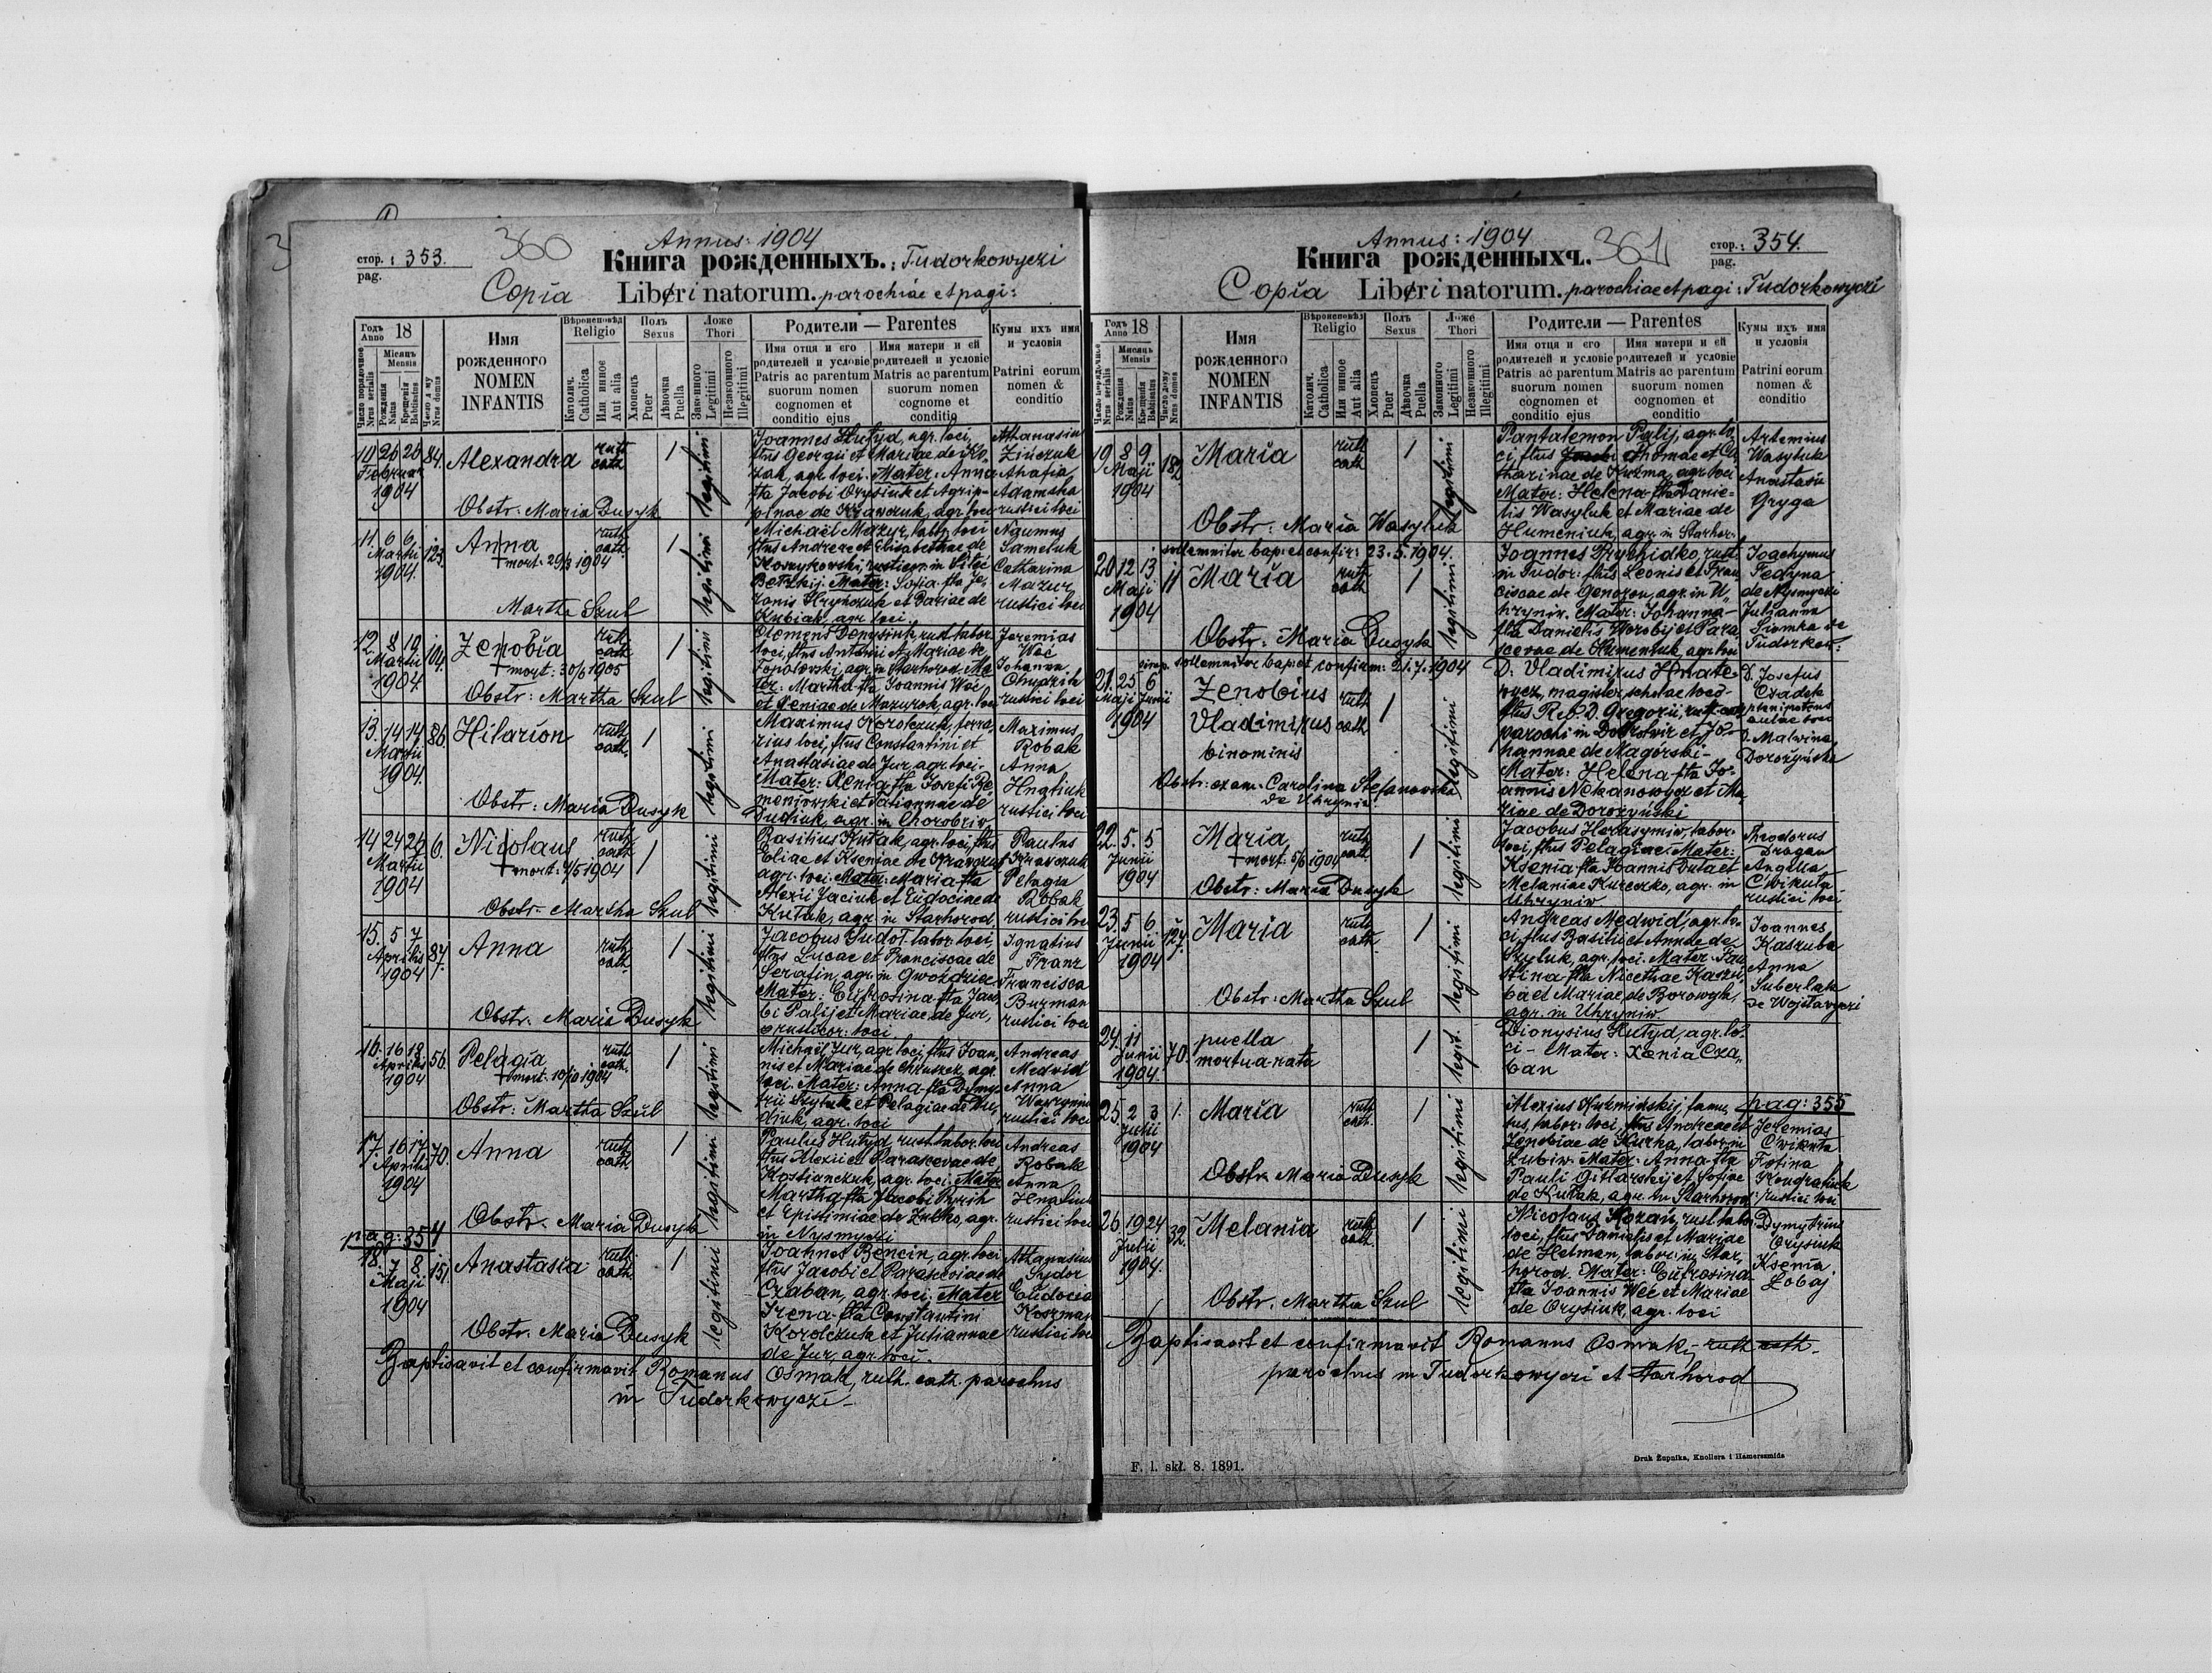 Annus: 1904
стор. : 353.
pag.
360
Книга рожденныхъ. : Tudorkowyczi
Copia Libri natorum. parochiae et pagi:
Годъ Anno 18
Число порядочное Nrus serialis
Місяць Mensis
Рожденія Natus
Крещенія Babtisatus
Nrus domus
Имя
рожденного
NOMEN
INFANTIS
Вѣроисповѣд
Religio
Католич. Catholica
Или инное Aut alia
Полъ
Sexus
Хлопець Puer
Дѣвочка Puella
Ложе
Thori
Законного Legitimi
Незаконного Illegitimi
Родители — Parentes
Имя отця и его
родителей и условіе
Patris ac parentum
suorum nomen
cognomen et
conditio ejus
Имя матери и ей
родителей и условіе
Matris ac parentum
suorum nomen
cognome et
conditio
Кумы ихъ имя
и условія
Patrini eorum
nomen &
conditio
10 25 25 84. Alexandra ruth. cath. 1 legitimi
Februar
1904
Obstr: Maria Dusyk
Joannes Hutyd, agr. loci,
ftus Georgii et Mariae de Ko-
zak, agr. loci. Mater: Anna
fta Jacobi Orysiuk et Agrip-
pinae de Krawczuk, agr. loci
Athanasius
Zińczuk
Ahafia
Adamska
rustici loci
11. 6 6 123. Anna ruth. cath. 1 legitimi
Martii
1904.
mort: 29/3 1904
Martha Szul
Michaël Mazur, lab. loci
ftus Andreae et Elisabethae de
Mater: Sofia fta
Kubiak, agr. loci.
Sametuk
Catharina
Mazur
rustici loci
12. 8 19. 104. Zenobia ruth. cath. 1 legitimi
Martii
1904.
mort: 30/6 1905
Obstr: Martha Szul
Clemens Denysiuk, rust. labor.
loci, ftus Antonii et Mariae de
Topolowski, agr. in Starhorod. Ma-
ter: Martha fta Joannis Woć
et Xeniae de Mazurok, agr. loci
Jeremias
Woć
Johanna
rustici loci
13. 14 14 86. Hilarion ruth. cath. 1 legitimi
Martii
1904.
Obstr: Maria Dusyk
Maximus Korolczuk,
rius loci, ftus Constantini et
Anastasiae de Jur, agr. loci.
Mater: Xenia fta Josefi Re-
meniowski et Tatiannae de
Dudiuk, agr. in Chorobriw
Maximus
Robak
Anna
Hnatiuk
rustici loci
14 24 26. Nicolaus ruth. cath. 1 legitimi
Martii
1904
mort: 4/5 1904
Obstr. Martha Szul
Basilius Kutak, agr. loci, ftus
Eliae et Kseniae de Krawczuk
agr. loci. Mater: Maria fta
Alexii Jaciuk et Eudociae de
Kutak, agr. in Starhorod.
Paulus
Krawczuk
Pelagia
Robak
rustici loci
15. 5 7 87. Anna ruth. cath. 1 legitimi
Aprilis
1904
Obstr. Maria Dusyk
Jacobus Sudoł labor. loci,
ftus Lucae et Franciscae de
Serafin, agr. in Gwoździec
Mater: Eufrosina fta Jaco-
bi Palij et Mariae de Jur,
rusticor. loci
Ignatius
Franz
Francisca
Burman
rustici loci
16. 16 18 56. Pelagia ruth. cath. 1 legitimi
Aprilis
1904
mort: 10/10 1904
Obstr: Martha Szul
Michaël Jur, agr. loci, ftus Joan-
nis et Mariae de Chruszcz, agr.
loci. Mater: Anna fta Dymy-
trii Szyluk et Pelagiae de Du-
diuk, agr. loci
Andreas
Medwid
Anna
rustici loci
17. 16 17 70. Anna ruth. cath. 1 legitimi
Aprilis
1904
Obstr. Maria Dusyk
Paulus Hutyd, rust. labor. loci
ftus Alexii et Parascevae de
Kostianczuk, agr. loci. Mater
Martha fta Jacobi
et Epistimiae de agr.
in Nysmyczi
Andreas
Robak
Anna
Hnatiuk
rustici loci
pag: 354
18. 7 8 151. Anastasia ruth. cath. 1 legitimi
Maji
1904
Obstr. Maria Dusyk
Joannes Bencin, agr. loci
ftus Jacobi et Parasceviae de
Czaban, agr. loci. Mater
Irena fta Constantini
Korolczuk et Juliannae
de Jur, agr. loci.
Athanasius
Sydor
Eudocia
rustici loci
Baptisavit et confirmavit Romanus Osmak, ruth. cath. parochus
in Tudorkowyczi
Annus: 1904
361
стор. : 354.
pag.
Книга рожденныхъ.
Copia Libri natorum. parochiae et pagi: Tudorkowyczi
Годъ Anno 18
Мисяць Mensis
Рожденія Natus
Крещенія Babtisatus
Число дому Nrus domus
Имя
рожденного
NOMEN
INFANTIS
Вѣроисповѣд
Religio
Католич. Catholica
Или инное Aut alia
Полъ
Sexus
Хлопець Puer
Дѣвочка Puella
Ложе
Thori
Законного Legitimi
Незаконного Illegitimi
Родители — Parentes
Имя отця и его
родителей и условіе
Patris ac parentum
suorum nomen
cognomen et
conditio ejus
Имя матери и ей
родителей и условіе
Matris ac parentum
suorum nomen
cognomen et
conditio
Кумы ихъ имя
и условія
Patrini eorum
nomen &
conditio
19 8 9 182. Maria ruth. cath. 1 legitimi
Maji
1904
Obstr: Maria Wasyluk
Pantalemon Palij, agr. lo-
ci, ftus Thomae et Ca-
tharinae de Kuzma, agr. loci
Mater: Helena fta Danie-
lis Wasyluk et Mariae de
Humeniuk, agr. in Starhor.
Artemius
Wasyluk
Anastasia
Gryga
sollemniter bap: et confir: 23.5.1904.
20 12 13 11 Maria ruth. cath. 1 legitimi
Maji
1904
Obstr: Maria Dusyk
Joannes Prychidko, rust.
in Tudor: ftus Leonis et Fran-
ciscae de agr. in U-
hryniw. Mater: Johanna
fta Danielis Worobij et Para-
scevae de Humeniuk, agr. loci
Joachymus
Fedyna
de Nysmyczi
Julianna
Slomka de
Tudorkow:
sollemniter bap: et confirm: 21.7.1904
21. 25 6 Zenobius ruth. 1 legitimi
Maji Junii
1904 Vladimirus cath.
binominis
Obstr: exam. Carolina Stefanowska
de Uhryniw
D: Vladimirus Hnate-
wycz, magister scholae loci
ftus Rev. D. Gregorii,
parochi in Dobrotwir et Jo-
hannae de Magórski
Mater: Helena fta Jo-
annis Nekanowycz et Ma-
riae de Dorożyński
D. Josefus
Czadek
plenipotens
aulae loci
D. Malwina
Dorożyńska
22. 5. 5 Maria ruth. cath. 1 legitimi
Junii
1904
mort: 5/6 1904
Obstr: Maria Dusyk
Jacobus Herasymiw, labor.
loci, ftus Pelagiae. Mater:
Ksenia fta Joannis Duta et
Melaniae Kureczko, agr. in
Uhryniw
Theodorus
Dragan
Angella
Cwikuta
rustici loci
23. 5 6 127. Maria ruth. cath. 1 legitimi
Junii
1904
Obstr: Martha Szul
Andreas Medwid, agr. lo-
ci, ftus Basilii et Annae de
Szyluk, agr. loci. Mater: Pau-
lina fta Nicethae Kaszu-
ba et Mariae de Borowyk,
agr. in Uhryniw.
Joannes
Kaszuba
Anna
Suberlak
de Wojslawyczi
24. 11 70. puella 1 legit.
Junii mortua nata
1904.
Dionysius Hutyd, agr. lo-
ci - Mater: Xenia Cza-
ban
25. 2 3 1. Maria ruth. cath. 1 legitimi
Julii
1904
Obstr. Maria Dusyk
Alexius Kuzminskij, famu-
lus, labor. loci, ftus Andreae et
Zenobiae de Kurka, labor. in
Lubiw. Mater: Anna fta
Pauli Gitlarskij et Sofiae
de Kutak, agr. in Starhorod
pag: 355
Jeremias
Cwikuta
Fotina
Kondratiuk
rustici loci
26 19 24 32. Melania ruth. cath. 1 legitimi
Julii
1904.
Obstr. Martha Szul
Nicolaus Kozań, rust. labor.
loci, ftus Danielis et Mariae
de Hetman, labor. in Star-
horod. Mater: Eufrosina
fta Joannis Woć et Mariae
de Orysiuk, agr. loci
Dymytrius
Orysiuk
Ksenia
Łobaj
Baptisavit et confirmavit Romanus Osmak, ruth. cath.
parochus in Tudorkowyczi et Starhorod
F. I. skł. 8. 1891.
Druk Żupnika, Knollera i Hamerszmida